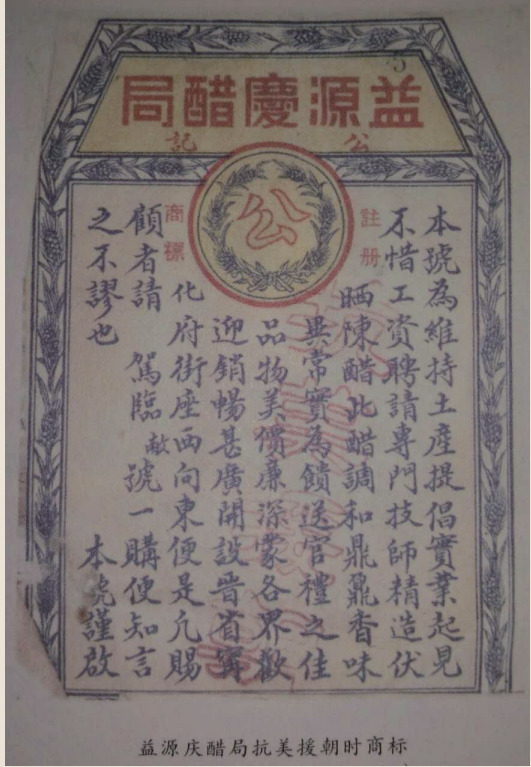 益源慶醋局
公記
公
註册
商標
本號為維持土產提倡實業起見
不惜工資聘請專門技師精造伏
晒陳醋此醋調和鼎鼐香味
異常實為饋送官禮之佳
品物美價廉深蒙各界歡
迎銷暢甚廣開設晉省寗
化府街座西向東便是凡賜
顧者請 駕臨敝號一購便知言
之不謬也 本號謹啟
益源庆醋局抗美援朝时商标